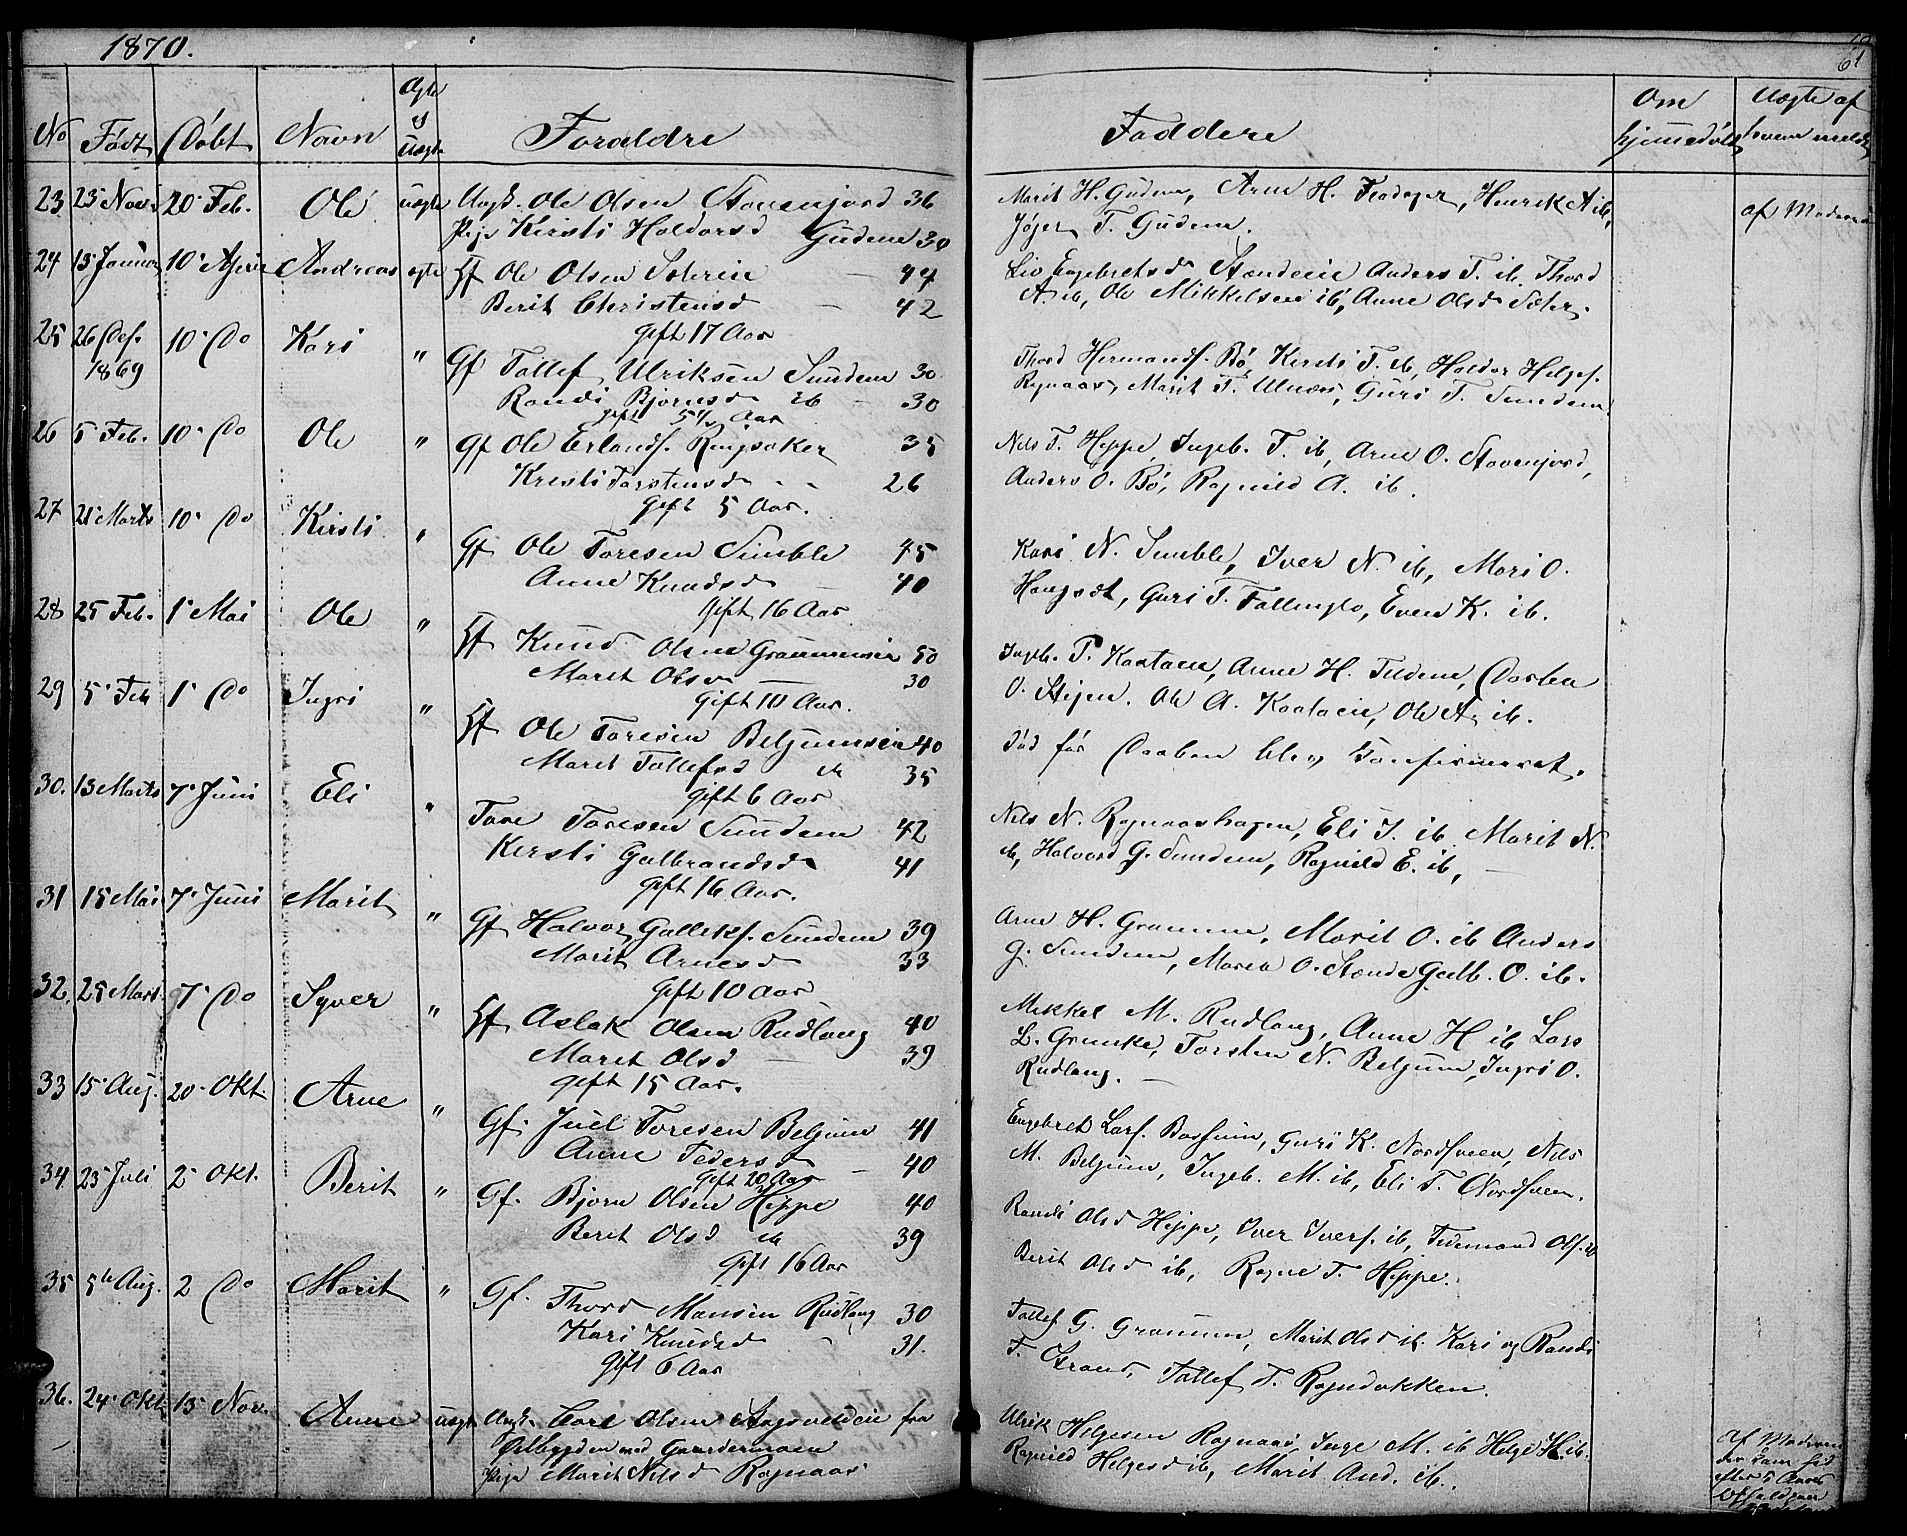 1870.
61
No Født Døbt Navn Ægte el Uægte Forældre
Faddere Om hjemmedøbt Uægte af hvem meldt
23 23 Novr 20. Feb. Ole uægte Ungk. Ole Olsen Stavenjord 36
Pige Kirsti Haldorsd Gudem 30
Marit H. Gudem, Arne H. Henrik A ib,
T. Gudem.
af Moderen
24 13 Januar 10. April Andreas ægte Gf Ole Olsen Seterin 44
Berit Christensd 42
Gift 17 Aar
Liv Engebretsd Anders T. ib. Thord
A. ib, Ole Mikkelsen ib, Anne Olsd Seter.
25 26 Des. 1869 10. Do Kari " Gf Tollef Ulriksen Sundem 30
Randi Bjørnsd ib 30
gift 5 1/2 Aar
Thord Hermands. Bø, Kirsti T. ib, Haldor Helges.
Rognaas, Marit T. Ulnæs, Guri T. Sundem
26 5 Feb. 10. Do Ole " Gf Ole Erlands. Ringsaker 35
Kristi Torstensd 26
Gift 5 Aar.
Nils T. Hippe, Ingeb. T. ib, Arne O. Stavenjord,
Anders O. Bø, Ragnild A. ib.
27 21. Marts 10. Do Kirsti " Gf Ole Toresen Simble 45
Anne Knudsd 40
Gift 16 Aar
Kari N. Simble, Iver N. ib, Mari O.
Guri T. Even K. ib.
28 25 Feb. 1. Mai Ole " Gf Knud Olsen 50
Marit Olsd 30
Gift 10 Aar.
Ingeb. P. Anne H.
O. Ole A. Ole A. ib.
29 5. Feb 1. Do Ingri " Gf Ole Toresen Beljumseie 40
Marit Tollefsd ib 35
Gift 6 Aar
Død før Daaben blev Konfirmeret.
30. 13 Marts 7. Juni Eli " Tore Toresen Sundem 42
Kirsti Gulbrandsd 41
Gift 16 Aar.
Nils N. Rognaashagen, Eli I. ib Marit N.
ib, Halvord G. Sundem, Ragnild E. ib,
31 15 Mai 7. Juni Marit " Gf Halvor Galliks. Sundem 39
Marit Arnesd 33
Gift 10 Aar
Arne H. Marit O. ib Anders
G. Sundem, Maria O. Stænde Gulb. O. ib.
32. 25 Mart. 7. Do Syver " Gf Aslak Olsen Rudlang 40
Marit Olsd 39
gift 15 Aar.
Mikkel M. Rudlang, Anne H ib Lars
L. Torsten N. Beljum, Ingri O.
Rudlang.
33 15. Aug. 20. Okt. Arne " Gf. Juel Toresen Beljum 41
Anne Pedersd 40
Gift 20 Aar
Engebret Lars. Guri K. Nordsveen, Nils
M. Beljum, Ingeb. M. ib, Eli T. Nordsveen.
34 23 Juli 2. Okt. Berit " Gf. Bjørn Olsen Hippe 40
Berit Olsd ib 39
Gift 16 Aar
Randi Olsd Hippe, Iver Ivers. ib, Tidemand Ols. ib
Berit Olsd ib, Ragne T. Hippe.
35 5te Aug. 2 Do Marit " Gf. Thord Monsen Rudlang 30
Kari Knudsd 31.
Gift 6 Aar
Tollef G. Marit Olsd ib. Kari og Randi
T. Strand, Tollef T. Rognebakken.
36. 24. Okt. 13. Nov. Anne uægte Ungk. Carl Olsen fra
Østbygden ved Gardermoen
Pige Marit Nilsd Rognaas
Ulrik Helgesen Rognaas, Inge M. ib Helge H. ib.
Ragnild Helgesd ib, Marit And. ib.
Af Moderen
efter 5 Aars